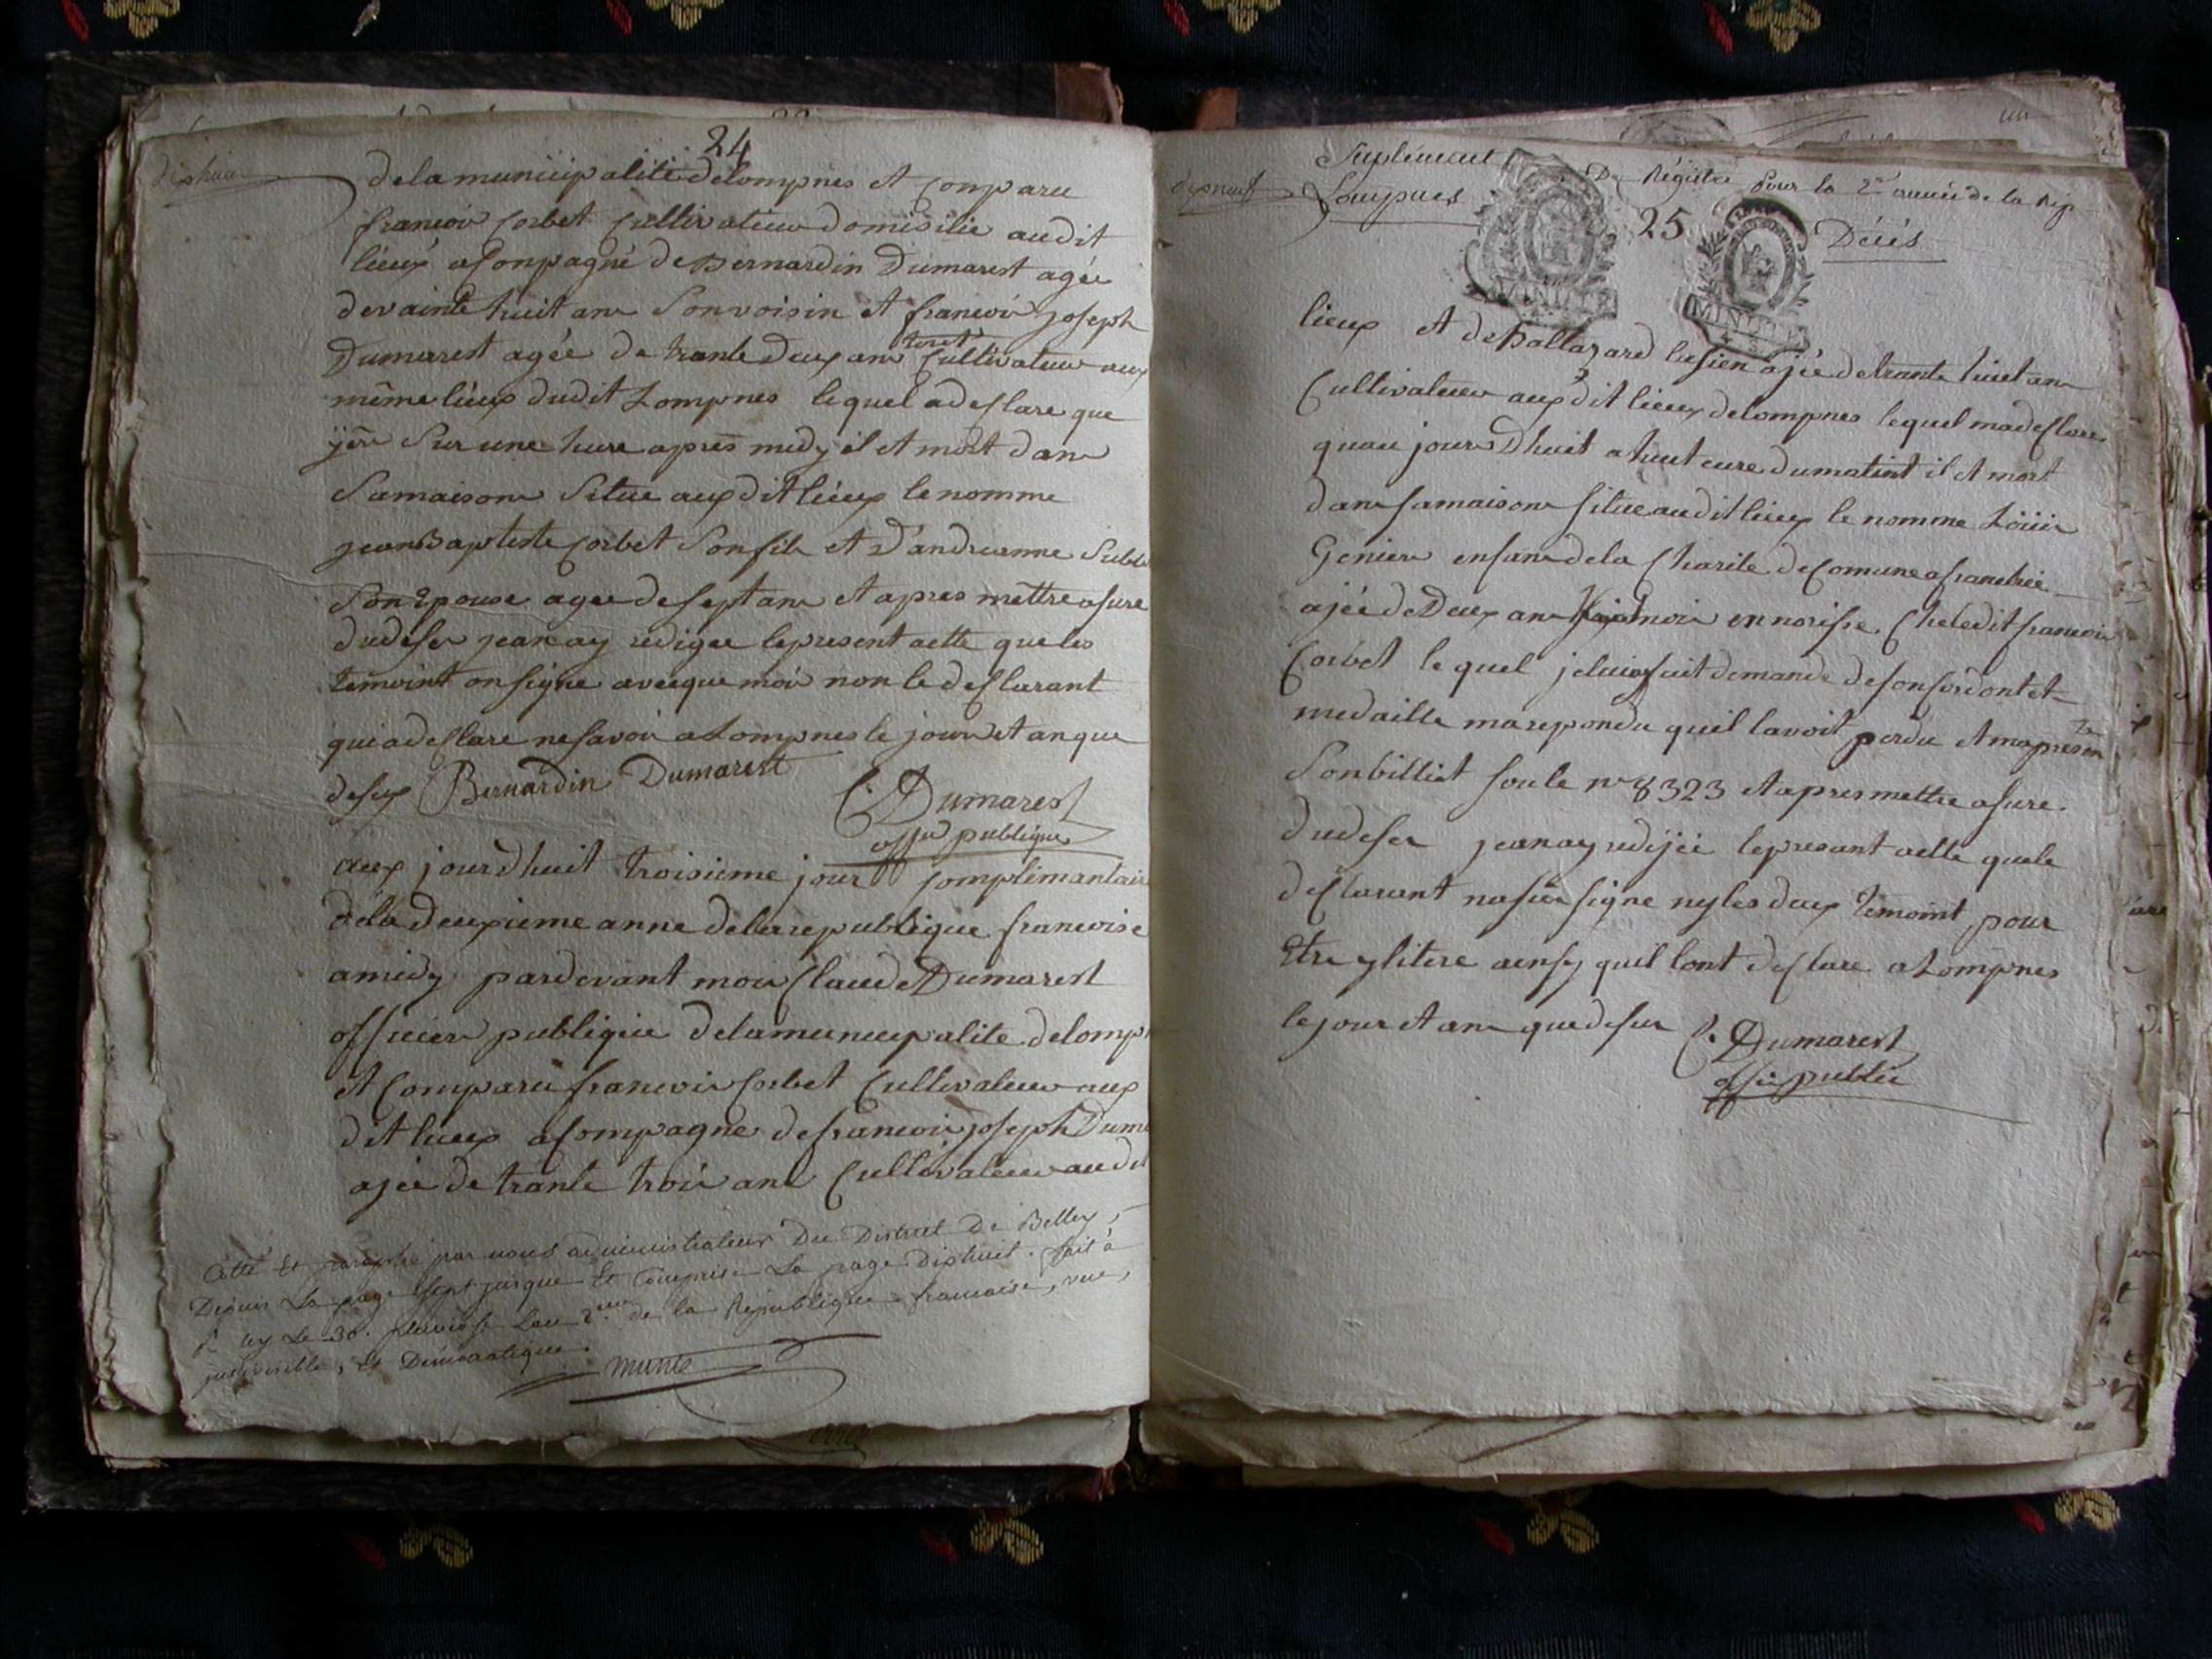 24
dixhuit
dela municipalité delompnes et conparu
francoir Corbet Cultivateur domisilie audit
lieux aconpagné de Bernardin Dumarest agée
devainte huit anr Sonvoisin et francoir joseph
Dumarest agée de trante Deux anr Cultivateur aux
même lieux dudit Lompnes lequel adesclare que
yérr Sur une hure aprés midy il et mort danr
Samaisonr Situe auxdit lieux le nomme
jeanBaptiste Corbet Son filr et D'andreanne
Son Epouse agee desept anr et apres mettre asure
dudeser jeanay rediger lepresent actte queles
temoint on signe avecque moir non le desclarant
quiadesclare nesavoir aLompnes le jour et an que
desux Bernardin Dumarest
C. Dumarest
offier publique
aux jourdhuit troisieme jour complimantair
dela deuxieme anne delarepublique francoise
amidy pardevant moir Claude Dumarest
officier publique delamunicipalite delomp
et Comparu francoir Corbet Cultivateur aux
dit lieux acompagne defrancoir joseph Dum
ajée de trante troir anr Cultivateur audit
Cotté Et paraphé par nous administrateur Du District De Belley,
Depuis La page Sept jusque Et Comprise La page dixhuit. fait à
Ley Le 30. pluviose Lan 2.eme de la Republique francaise, une,
indivisible, Et Démocratique.
Suplément De Régistre pour la 2e année de la Rép
dixneuf
Lompnes
25
Décés
MINUTE
MINUTE
lieux et deBaltazard ajée detrante huit anr
Cultivateur auxdit lieux delompnes lequel madesclare
quau jour Dhuit ahuit eure dumatint il et mort
danr samaisonr situe audit lieux le nomme Loüir
Genier enfanr dela Charite deComune afranchie
ajée de Deux anr moir en norisse Cheledit francoir
Corbet le quel jeluiay fait demande deson Cordont et
medaille marepondu quil lavoit perdu et mapresen
Sonbilliet soule no 8323 et apres mettre asure
dudeser jeanay redijée lepresant actte quele
desclarant nasue signe ny les deux temoint pour
Etre ylitere aensy quil lont desclare aLompnes
lejour et anr quedesur C. Dumarest
offier publie